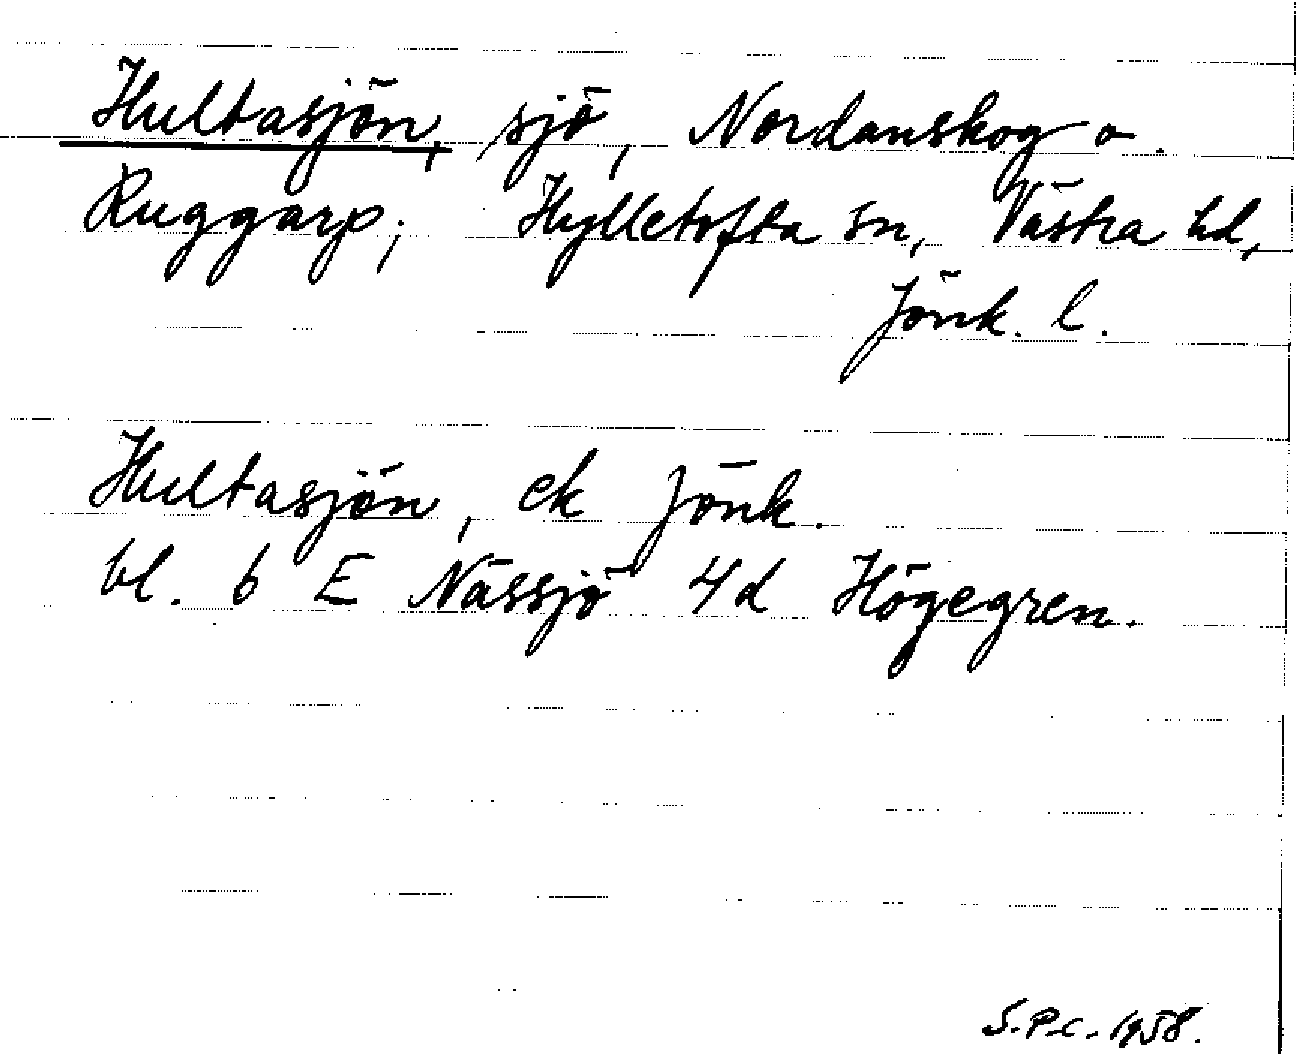 Hultasjön, sjö, Nordanskog o.
Ruggarp; Hylletofta sn, Västra hd,
Jönk. l.
Hultasjön, ek Jönk.
bl. 6 E Nässjö 4d Högegren.
S.P.C. 1958.